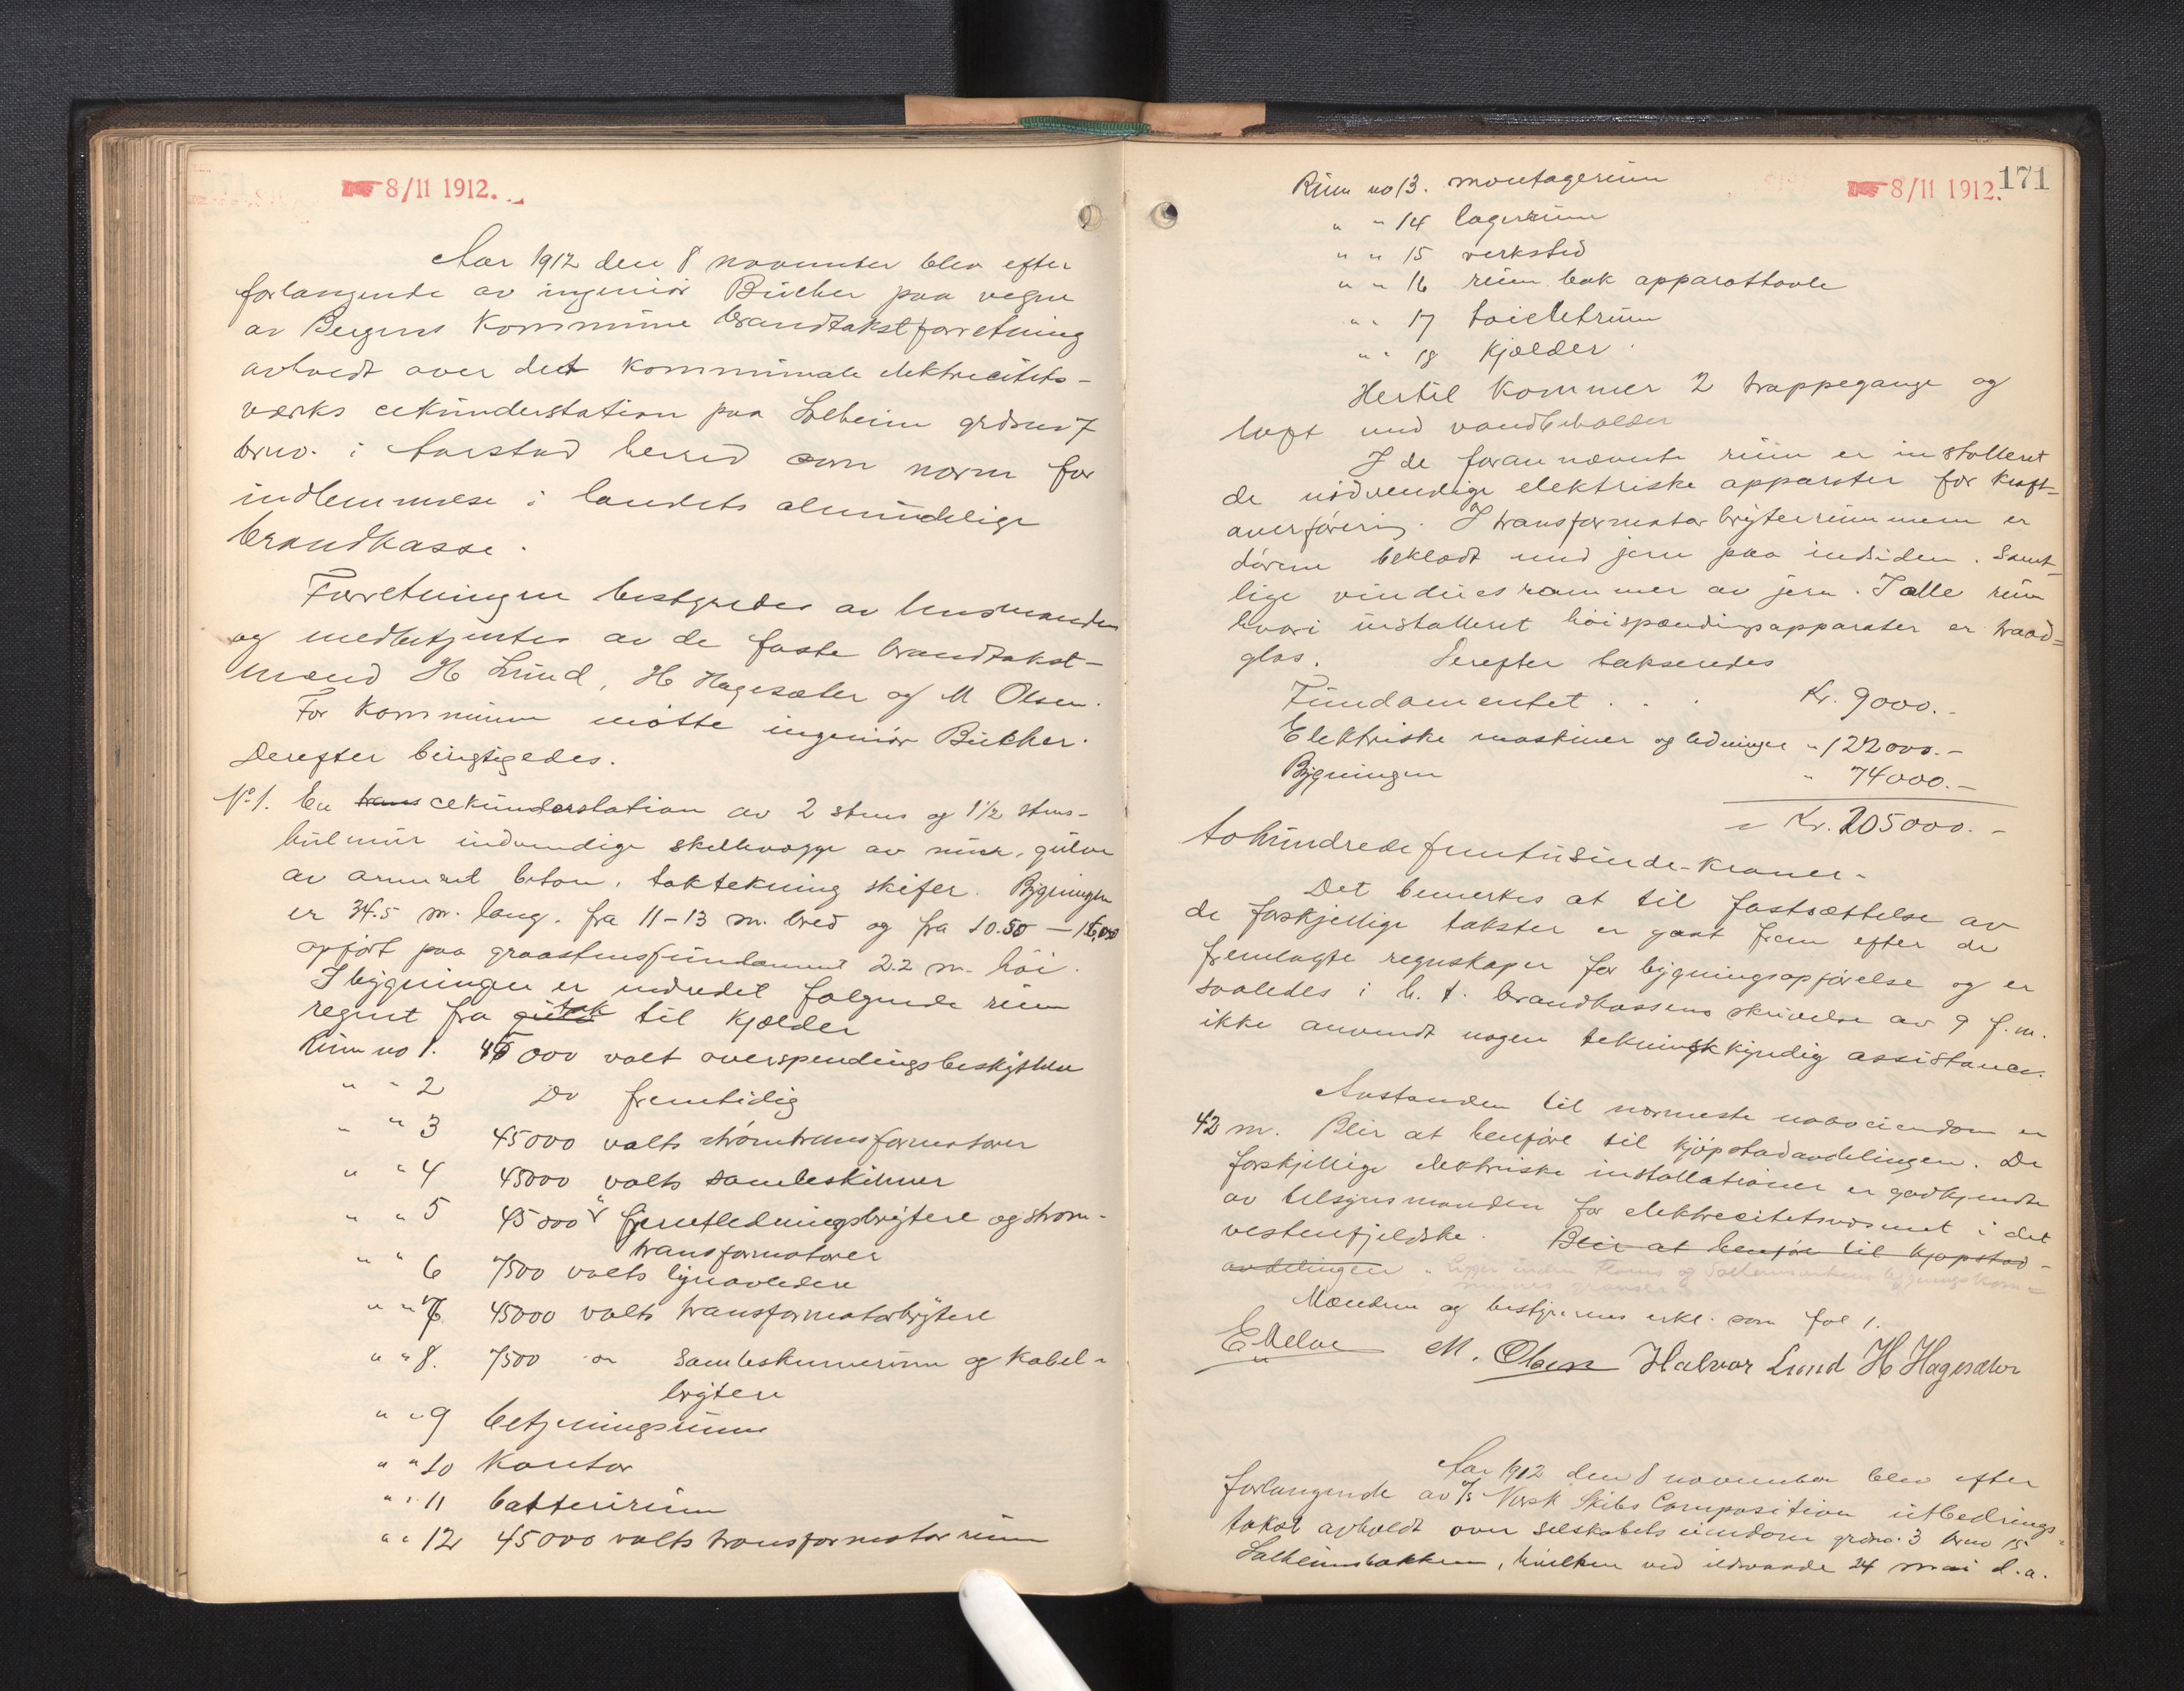 8/11 1912.
Aar 1912 den 8 november blev efter
forlangende av ingeniør Bücher paa vegne
av Bergens Kommune brandtakstforretning
avholdt over det kommunale elektricitets-
værks cekunderstation paa Solheim grdsno 7
brno. i Aarstad herred som norm for
indlemmelse i landets almindelige
brandkasse.
Forretningen bestyredes av lensmanden
og medbetjentes av de faste brandtakst-
mænd H Lund, H Hagesæter og M Olsen.
For Kommunen møtte ingeniør Bücher.
Derefter besigtigedes.
No 1. En trans cekunderstation av 2 stens og 1½ stens-
hulmur indvendige skillevægge av mur, gulve
av armeret beton, taktekning skifer. Bygningen
er 34.5 m. lang. fra 11-13 m. bred og fra 10.50 —
opført paa graastensfundament 2.2 m. høi.
I bygningen er indredet følgende rum
regnet fra tak til kjelder
Rum no 1. 45000 volt overspendingsbeskyttere
" " 2 Do fremtidig
" " 3 45000 volts strømtransformatorer
" " 4 45000 volts samleskinner
" " 5 45000 v fjernledningsbrytere og strøm-
transformatorer
" " 6 7500 volts lynavledere
" " 7 45000 volts transformatorbrytere
" " 8. 7500 " samleskinnerum og kabel-
brytere
" " 9 betjeningsrum
" " 10 Kontor
" " 11 batterirum
" " 12 45000 volts transformatorrum
8/11 1912.
171
Rum no 13. montagerum
" " 14 lagerrum
" " 15 verksted
" " 16 rum bak apparattavle
" " 17 toiletrum
" " 18 Kjælder.
Hertil Kommer 2 trappegange og
loft med vandbeholder
I de foran nævnte rum er installeret
de nødvendige elektriske apparater for kraft-
overføring. I transformatorbryterrummene er
dørene beklædt med jern paa indsiden. Samt-
lige vinduesrammer av jern. I alle rum
hvori installeret høispændingsapparater er traad-
glas. Derefter takseredes
Fundamentet . . . Kr. 9000.-
Elektriske maskiner og ledninger " 122000.-
Bygningen " 74000.-
= Kr. 205000.-
tohundredefemtusinde-kroner-
Det bemerkes at til fastsættelse av
de forskjellige takster er gaat frem efter de
fremlagte regnskaper for bygningsopførelse og er
saaledes i h. t. brandkassens skrivelse av 9 f.m.
ikke anvendt nogen tekniskkyndig assistance.
Avstanden til nærmeste naboeiendom er
42 m. Blir at henføre til kjøpstadavdelingen. De
forskjellige elektriske installationer er godkjendte
av tilsynsmanden for elektricitetsvæsenet i det
vestenfjeldske. Blir at henføre til kjøpstad-
avdelingen
Mændene og bestyrernes erkl. som fol 1.
M. Olsen Halvor Lund H Hagesæter
Aar 1912 den 8 november blev efter
forlangende av A/S Norsk Skibs Composition utbedrings-
takst avholdt over selskabets eiendom grdno. 3 brno 15
Solheimsbakken, hvilken ved ildvaade 24 mai d.a.